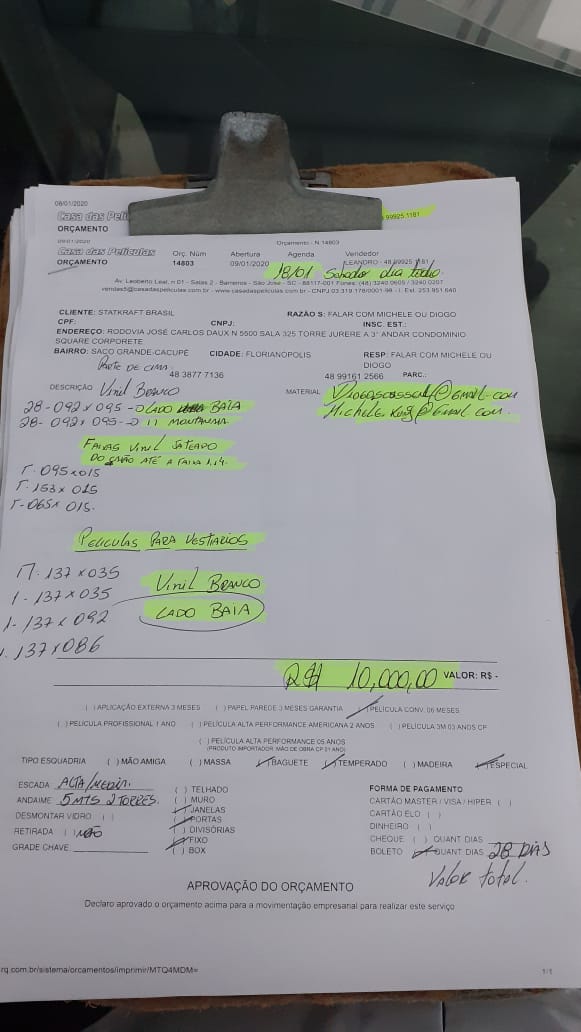 08/01/2020
Casa das Pelí
99925.1181
ORÇAMENTO
Orçamento - N 14803
09/01/2020
Casa das Películas
Orç. Núm Abertura Agenda Vendedor
ORÇAMENTO 14803 09/01/2020 LEANDRO - 48 99925 1181
18/01 Sabado dia todo
Av. Leoberto Leal, n 01 - Salas 2 - Barreiros - São José - SC - 88117-001 Fones: (48) 3240.0605 / 3240.0207
vendas5@casadaspeliculas.com.br - www.casadaspeliculas.com.br - CNPJ 03.319.178/0001-98 - I. Est. 253.951.640
CLIENTE: STATKRAFT BRASIL RAZÃO S: FALAR COM MICHELE OU DIOGO
CPF: CNPJ: INSC. EST.:
ENDEREÇO: RODOVIA JOSÉ CARLOS DAUX N 5500 SALA 325 TORRE JURERE A 3° ANDAR CONDOMINIO
SQUARE CORPORETE
BAIRRO: SACO GRANDE-CACUPÉ CIDADE: FLORIANÓPOLIS RESP: FALAR COM MICHELE OU
DIOGO
PARTE DE CIMA. 48 3877 7136 48 99161 2566 PARC.:
DESCRIÇÃO Vinil Branco MATERIAL
28-092x095-D LADO BAIA
28-092x095-D 11 MONTANHA
Michele.
@Gmail.com.
FAIXAS VINIL JATEADO
DO CHÃO ATÉ A FAIXA 1,14.
095x015
153x015
065x015.
PELICULAS PARA VESTIARIOS
137x035 Vinil BRANCO
1-137x035
LADO BAIA
1-137x092
137x086
R$ 10,000,00 VALOR: R$ -
( ) APLICAÇÃO EXTERNA 3 MESES ( ) PAPEL PAREDE 3 MESES GARANTIA ( ) PELÍCULA CONV. 06 MESES
( ) PELÍCULA PROFISSIONAL 1 ANO ( ) PELÍCULA ALTA PERFORMANCE AMERICANA 2 ANOS ( ) PELÍCULA 3M 03 ANOS CP
( ) PELÍCULA ALTA PERFORMANCE 05 ANOS
(PRODUTO IMPORTADOR, MÃO DE OBRA CP 01 ANO)
TIPO ESQUADRIA ( ) MÃO AMIGA ( ) MASSA ( ) BAGUETE ( ) TEMPERADO ( ) MADEIRA ( ) ESPECIAL
ESCADA ALTA/MEDIA. ( ) TELHADO FORMA DE PAGAMENTO
ANDAIME 5 MTS 2 TORRES. ( ) MURO CARTÃO MASTER / VISA / HIPER ( )
DESMONTAR VIDRO ( ) ( ) JANELAS CARTÃO ELO ( )
( ) PORTAS DINHEIRO ( )
RETIRADA ( ) NÃO ( ) DIVISÓRIAS CHEQUE ( ) QUANT DIAS
GRADE CHAVE ( ) FIXO BOLETO ( ) QUANT DIAS 28 DIAS
( ) BOX Valor total.
APROVAÇÃO DO ORÇAMENTO
Declaro aprovado o orçamento acima para a movimentação empresarial para realizar este serviço
rq.com.br/sistema/orcamentos/imprimir/MTQ4MDM= 1/1